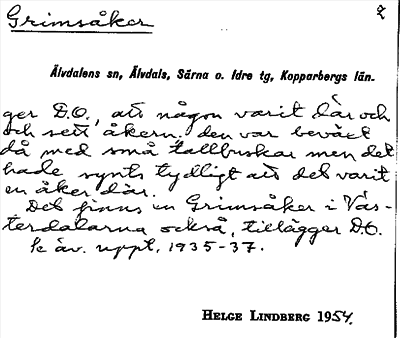 Grimsåker
2
Älvdalens sn, Älvdals, Särna o. Idre tg, Kopparbergs län.
ger D.O., att någon varit där och
och sett åkern. den var beväxt
då med små tallbuskar men det
hade synts tydligt att det varit
en åker där.
Det finns en Grimsåker i Väs-
terdalarna också, tillägger D.O.
Se äv. uppt. 1935-37.
HELGE LINDBERG 1954.